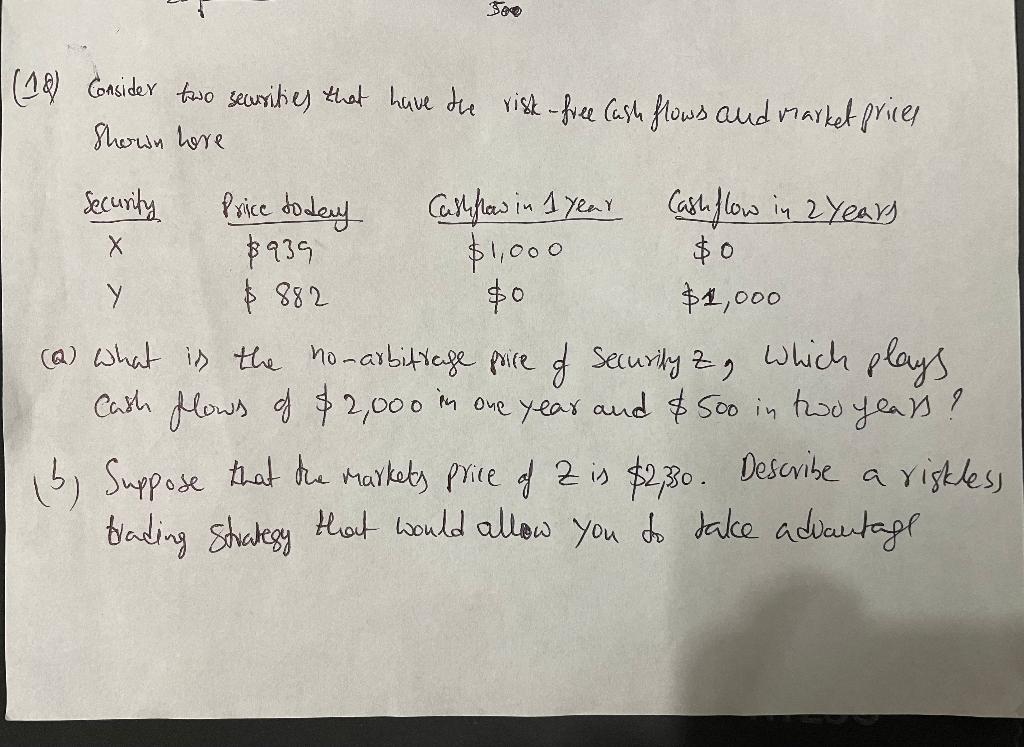 500
(18) Consider two securities that have the risk-free Cash flows and market prices
Shown here
Security Price today Cashflow in 1 year Cashflow in 2 Years
X $939 $1,000 $0
Y $ 882 $0 $1,000
(a) What is the no-arbitrage price of Security Z, which plays
Cash flows of $2,000 in one year and $500 in two years?
(b) Suppose that the markets price of Z is $2,330. Describe a riskless
trading strategy that would allow you to take advantage